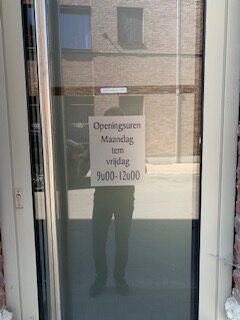 Openingsuren
Maandag
tem
vrijdag
9u00-12u00